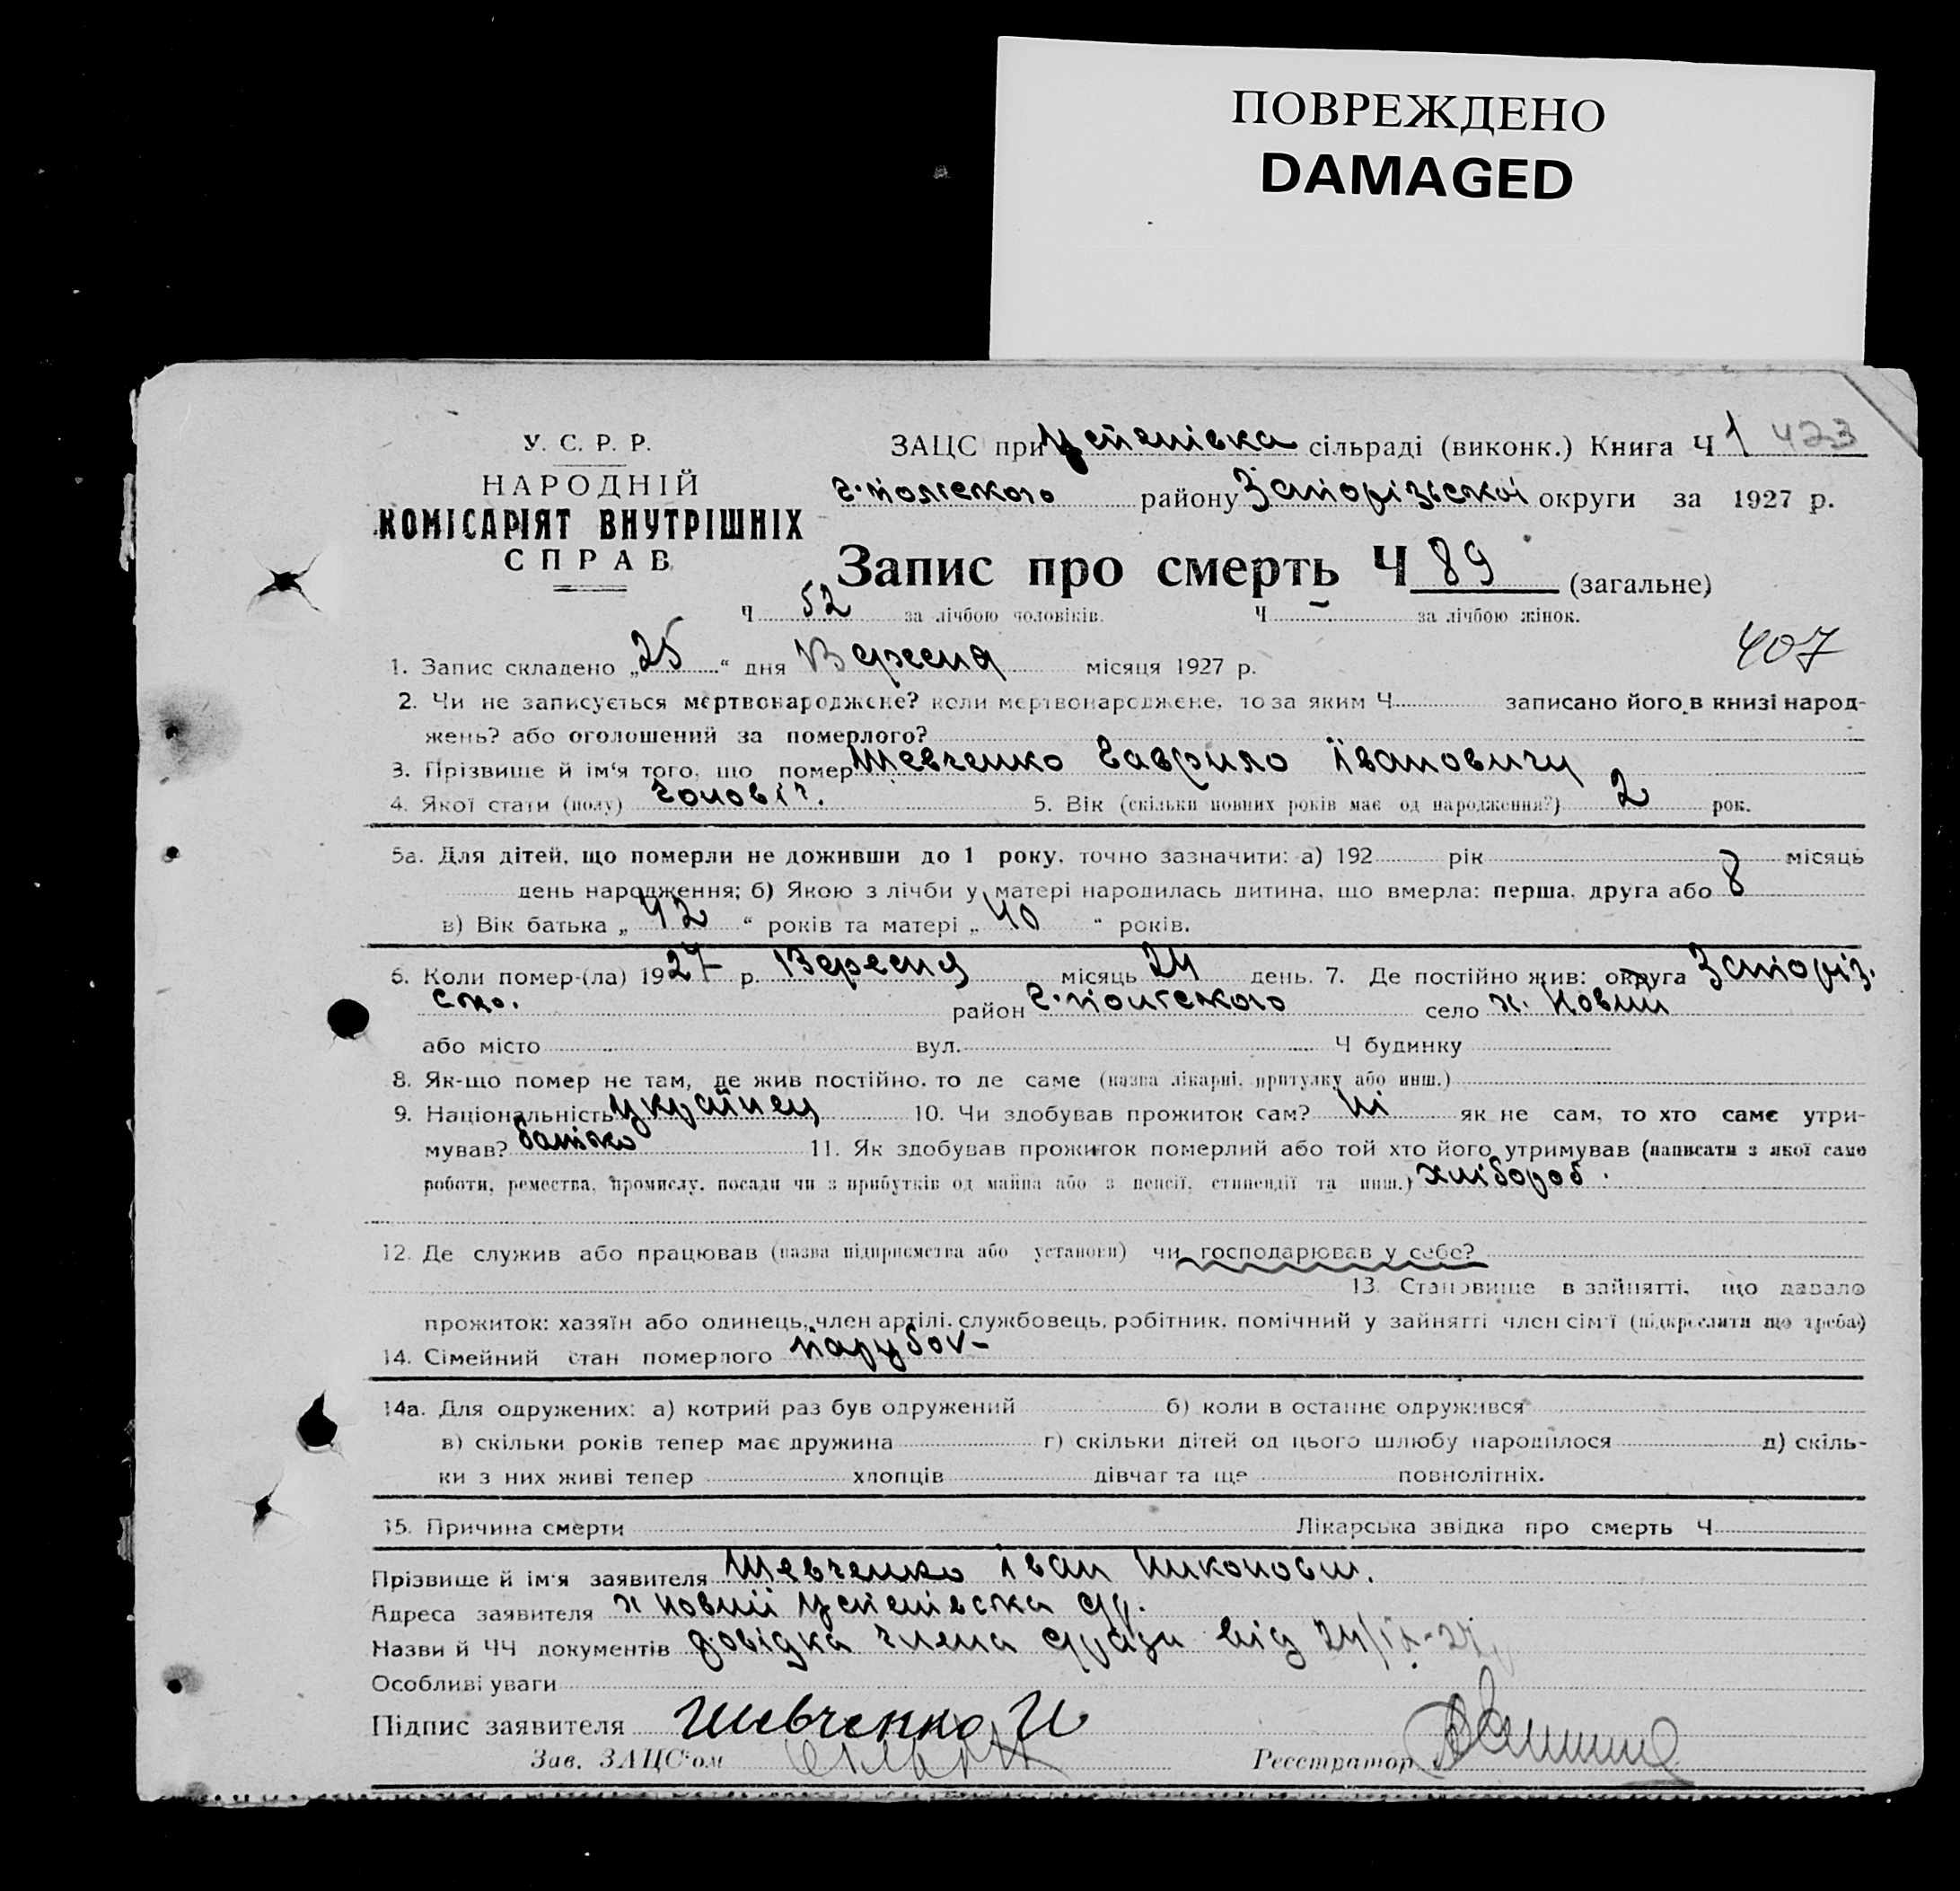 ПОВРЕЖДЕНО
DAMAGED
У. С. Р. Р.
НАРОДНІЙ
КОМІСАРІЯТ ВНУТРІШНІХ
СПРАВ
ЗАЦС при Успенівка сільраді (виконк.) Книга Ч 1 423
Г-польского району Запорізської округи за 1927 р.
Запис про смерть Ч 89 (загальне)
Ч 52 за лічбою чоловіків. Ч - за лічбою жінок.
407
1. Запис складено „25“ дня Вересня місяця 1927 р.
2. Чи не записується мертвонароджене? коли мертвонароджене, то за яким Ч записано його в книзі народ-
жень? або оголошений за померлого?
3. Прізвище й ім'я того, що помер Шевченко Гаврило Івановичу
4. Якої стати (полу) чоловіч. 5. Вік (скільки повних років має од народження?) 2 рок.
5а. Для дітей, що померли не доживши до 1 року, точно зазначити: а) 192 рік місяць
день народження; б) Якою з лічби у матері народилась дитина, що вмерла: перша, друга або 8
в) Вік батька „42“ років та матері „40“ років.
6. Коли помер-(ла) 1927 р. Вересня місяць 24 день. 7. Де постійно жив: округа Запоріз.
ско. район Г-польского село х. Новий
або місто вул. Ч будинку
8. Як-що помер не там, де жив постійно, то де саме (назва лікарні, притулку або инш.)
9. Національність українец 10. Чи здобував прожиток сам? Ні як не сам, то хто саме утри-
мував? батько 11. Як здобував прожиток померлий або той хто його утримував (написати з якої само
роботи, ремества, промислу, посади чи з прибутків од майна або з пенсії, стипендії та инш.) хлібороб.
12. Де служив або працював (назва підприємства або установи) чи господарював у себе?
13. Становище в зайнятті, що давало
прожиток: хазяїн або одинець, член артілі, службовець, робітник, помічний у зайнятті член сім'ї (підкреслити що треба)
14. Сімейний стан померлого паруబоч-
14а. Для одружених: а) котрий раз був одружений б) коли в останнє одружився
в) скільки років тепер має дружина г) скільки дітей од цього шлюбу народилося д) скіль-
ки з них живі тепер хлопців дівчат та ще повнолітніх.
15. Причина смерти Лікарська звідка про смерть Ч
Прізвище й ім'я заявителя Шевченко Іван Никонови.
Адреса заявителя х Новий Успенівська с/р.
Назви й ЧЧ документів Довідка члена с/ради від 24/ІХ-27
Особливі уваги
Підпис заявителя Шевченко И
Зав. ЗАЦС'ом
Реєстратор